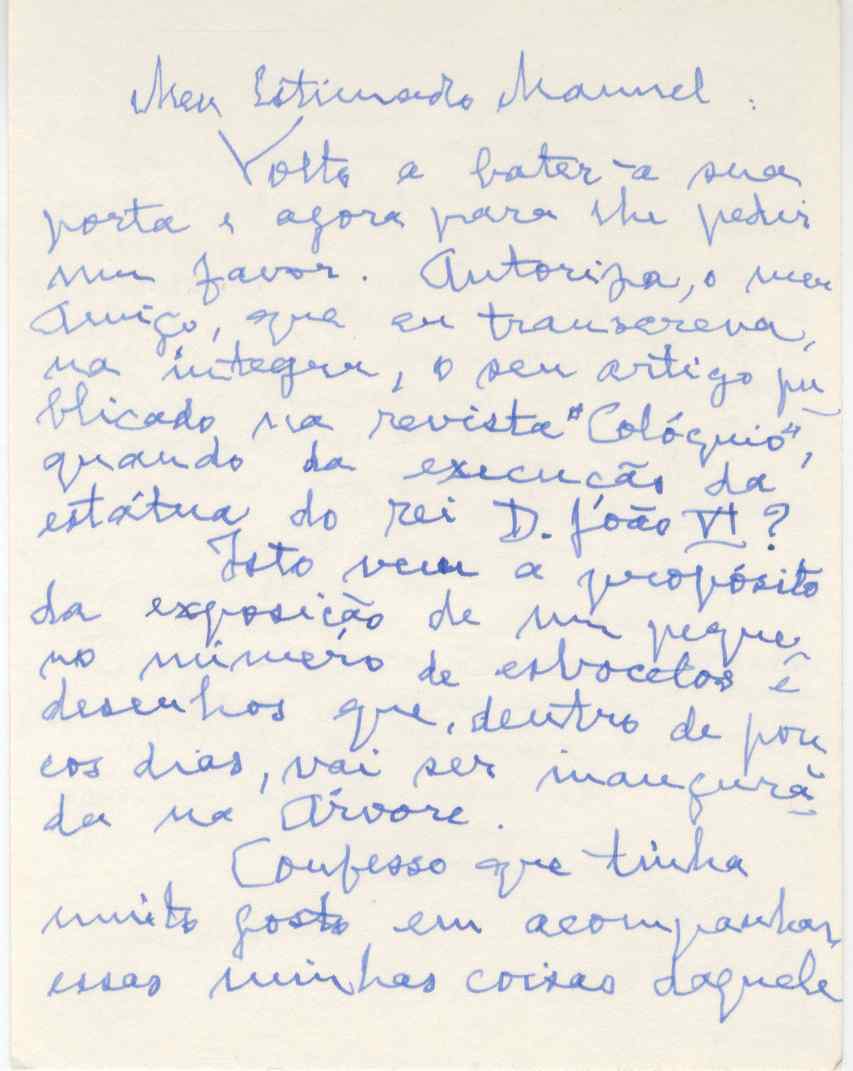 Meu Estimado Manuel :
Volto a bater-a sua
porta e agora para lhe pedir
um favor. Autoriza, o meu
Amigo, que eu transcreva,
na íntegra, o seu artigo pu
blicado na revista "Colóquio",
quando da execução da
estátua do rei D. João VI?
Isto vem a propósito
da exposição de um peque
no número de esbocetos e
desenhos que, dentro de pou
cos dias, vai ser inaugura
da na Árvore.
Confesso que tinha
muito gosto em acompanhar,
essas minhas coisas daquele